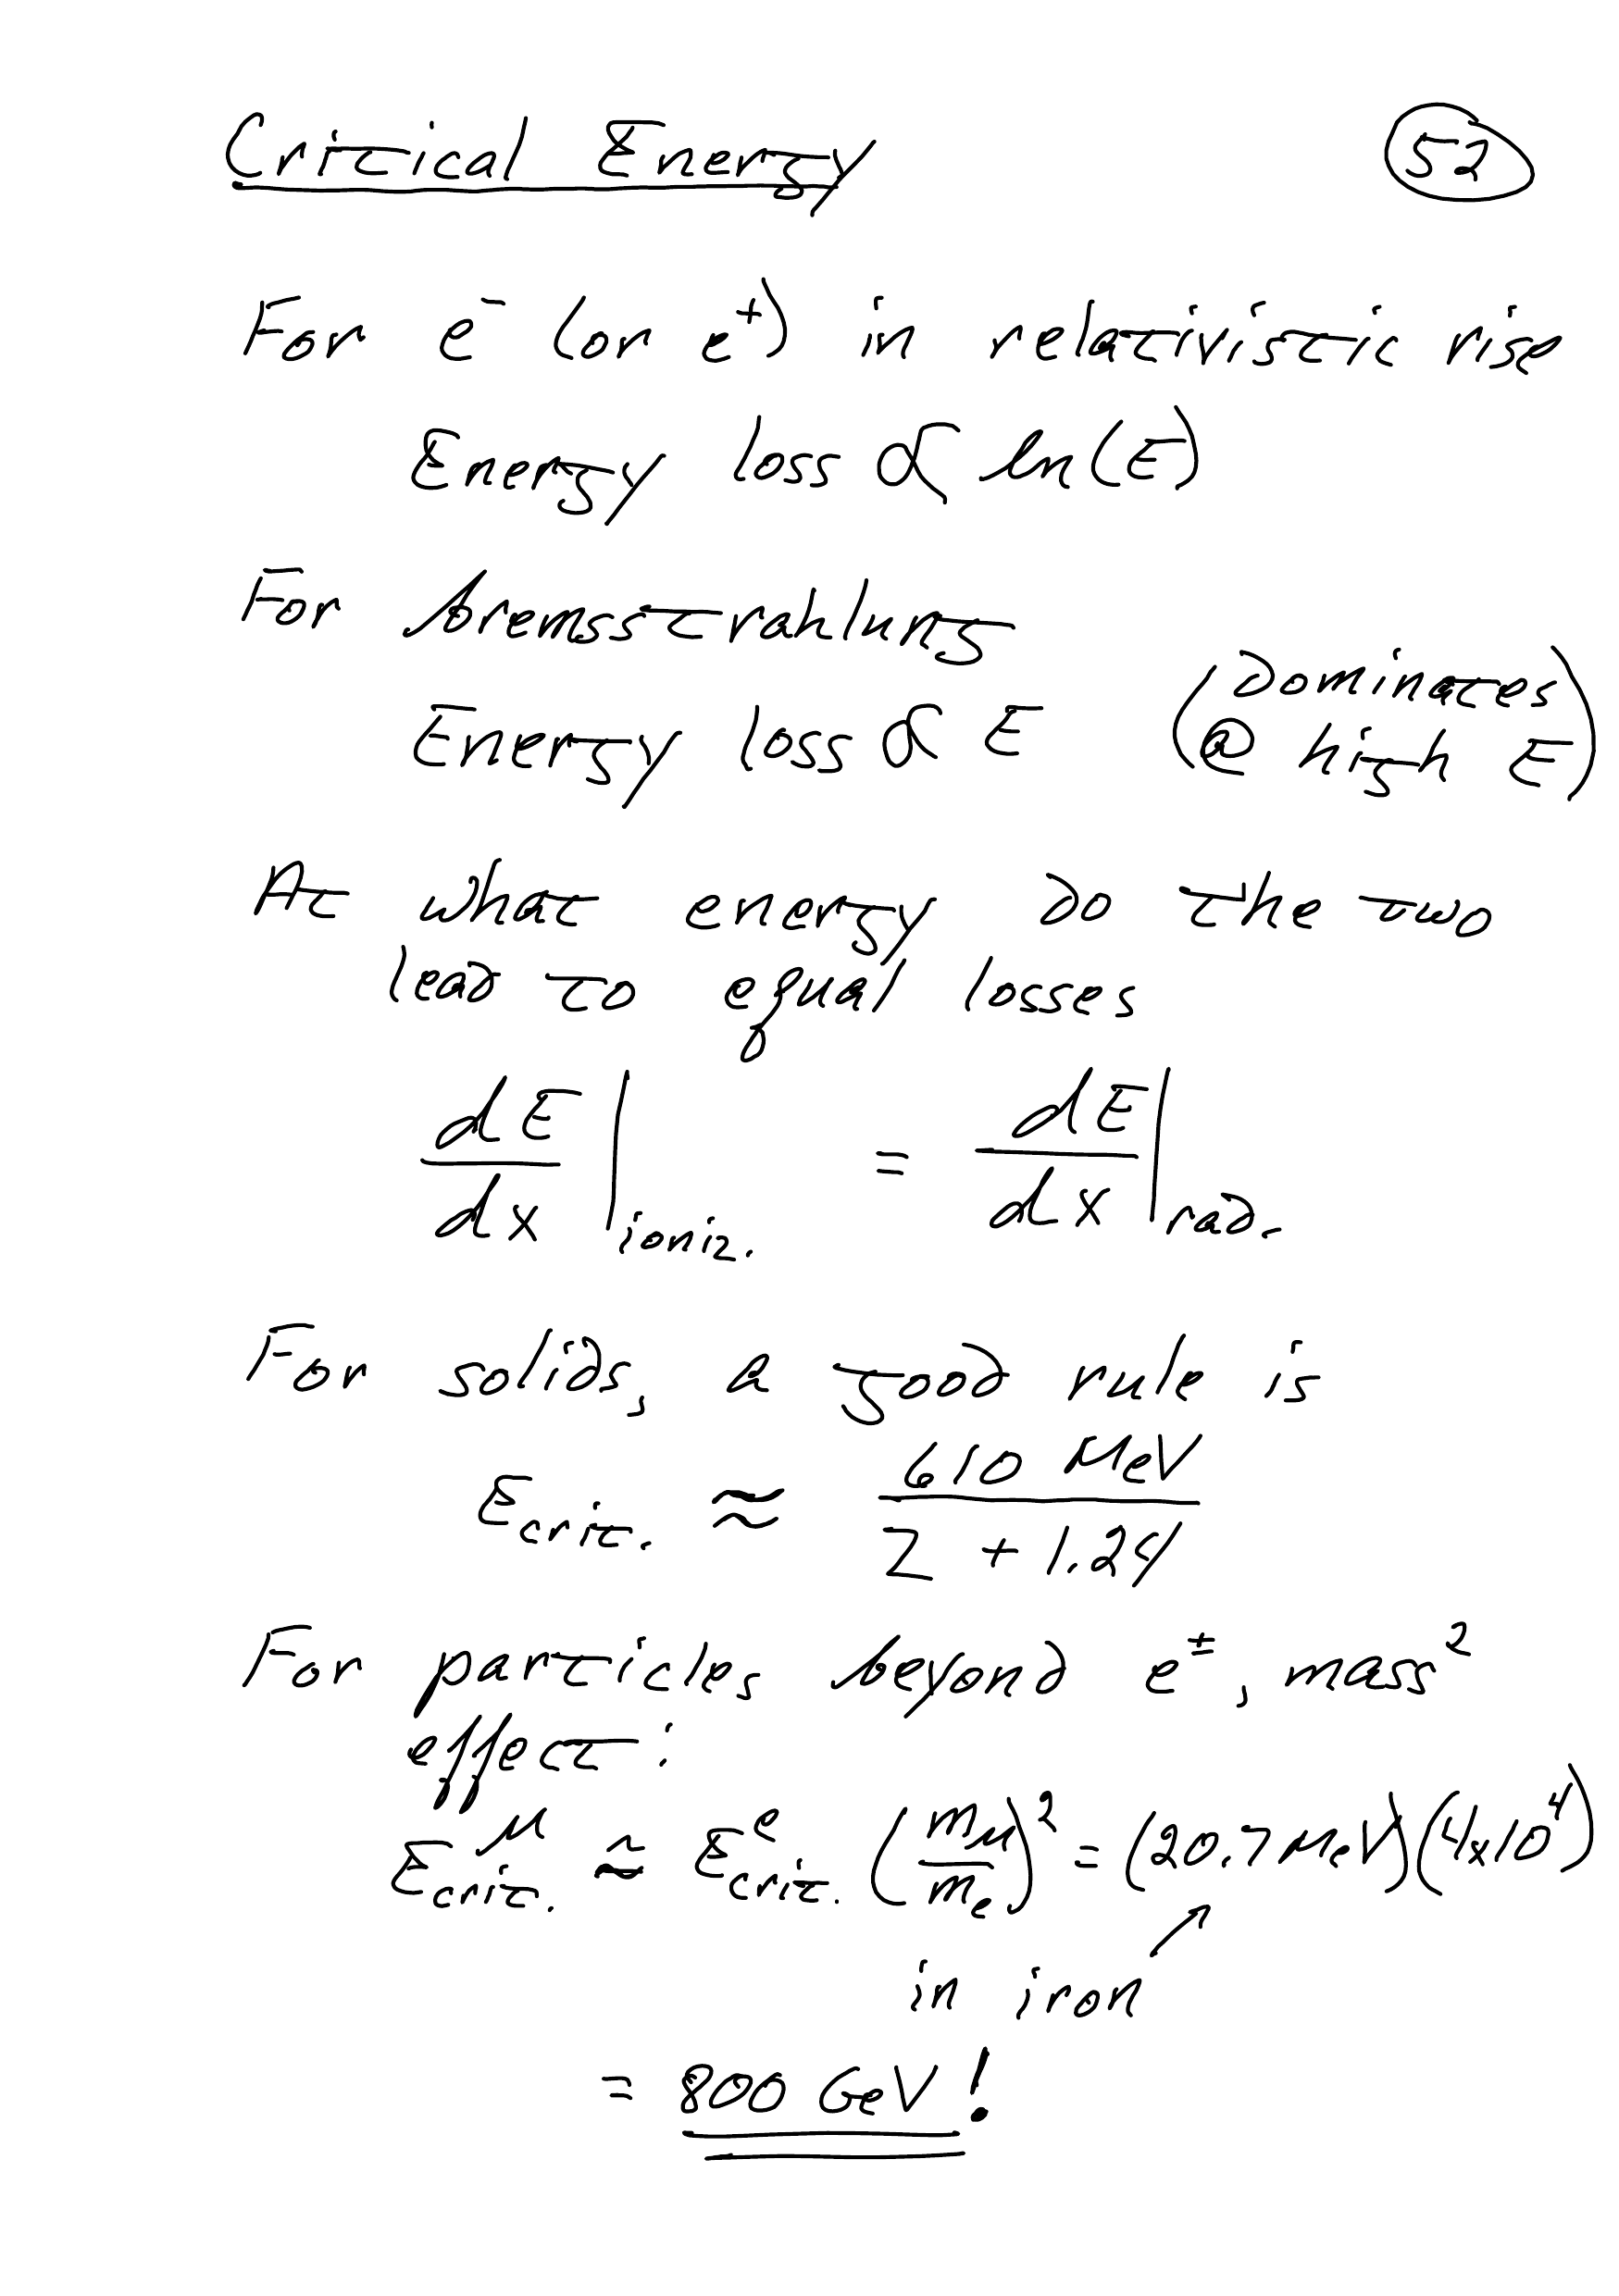 Critical Energy 52
For e⁻ (or e⁺) in relativistic rise
Energy loss ∝ ln(E)
For bremsstrahlung
Energy loss ∝ E (Dominates @ high E)
At what energy do the two
lead to equal losses
dE/dx |ioniz. = dE/dx |rad.
For solids, a good rule is
E_crit. ≈ 610 MeV / (Z + 1.24)
For particles beyond e^±, mass²
effect:
E_crit.^μ ≈ E_crit.^e (m_μ/m_e)² = (20.7 MeV)(4x10⁴)
in iron ↗
= 800 GeV!